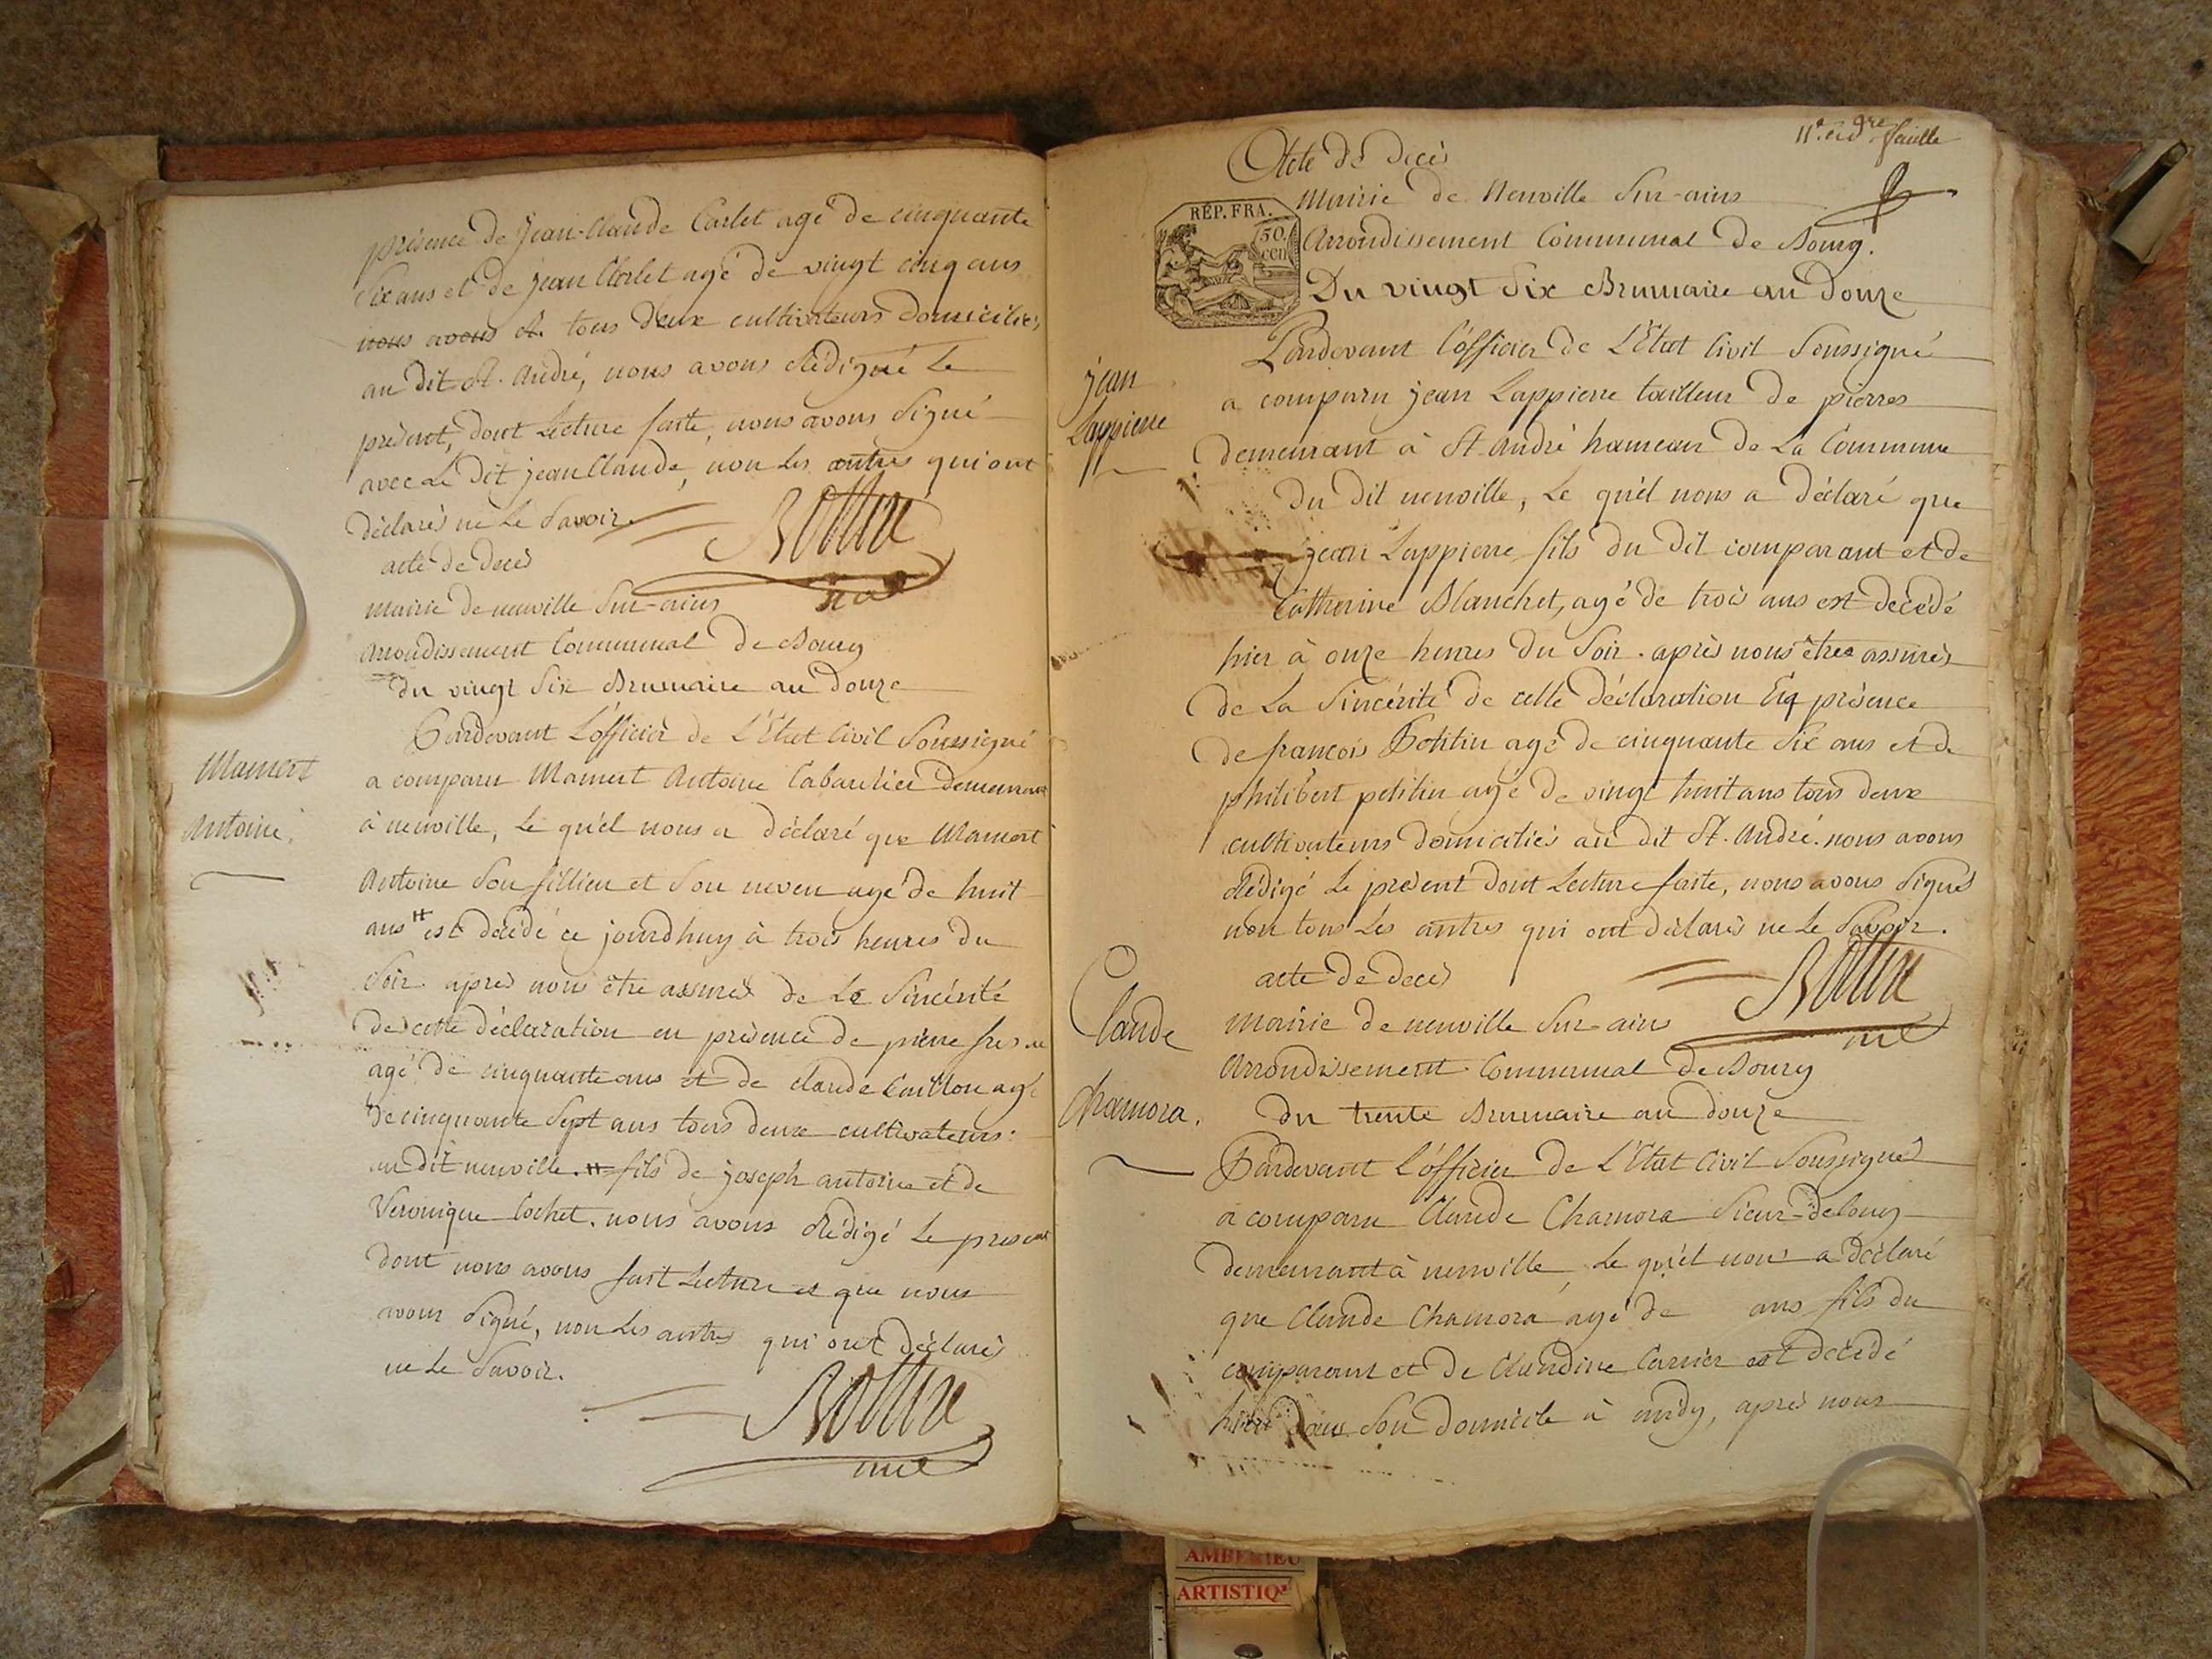 présence de Jean-Claude Carlet agé de cinquante
Six ans et de jean Carlet agé de vingt cinq ans
nous avons et tous deux cultivateurs domiciliés
au dit St. André, nous avons Rédigué Le
présent, dont Lecture faite, nous avons Signé
avec Le dit jean Claude, non Les autres qui ont
déclarés ne Le Savoir.
acte de decès
mairie de neuville Sur-ains
arrondissement Communal de Bourg
du vingt Six Brumaire an douze
Pardevant L'officier de L'Etat Civil Soussigné
Mamert
Antoine.
a comparu Mamert Antoine Cabartier demeurant
à neuville, Le qu'el nous a déclaré que Mamert
Antoine Son fillieu et Son neveu agé de huit
ans # est décédé ce jourdhuy à trois heures du
Soir après nous être assurés de La Sincérité
de cette déclaration en présence de pierre
agé de cinquante ans et de claude Caillon agé
de cinquante Sept ans tous deux cultivateurs
au dit neuville. # fils de joseph antoine et de
Véronique Cochet. nous avons Rédigé Le présent
dont nous avons fait Lecture et que nous
avons Signé, non Les autres qui ont déclarés
ne Le Savoir.
11e et dre feuille
Acte de decès
Mairie de Neuville Sur-ains
REP. FRA.
50. CEN
Arrondissement Communal de Bourg.
Du vingt Six Brumaire an douze
Pardevant L'officier de L'Etat Civil Soussigné
jean
Lappierre
a comparu jean Lappierre tailleur de pierres
demeurant à St. André hameau de La Commune
du dit neuville, Le qu'el nous a déclaré que
jean Lappierre fils du dit comparant et de
Catherine Blanchet, agé de trois ans est décédé
hier à onze heures du Soir. après nous être assurés
de La Sincérité de cette déclaration En présence
de françois Petitin agé de cinquante Six ans et de
philibert petitin agé de vingt huit ans tous deux
cultivateurs domiciliés au dit St. André. nous avons
Rédigé Le présent dont Lecture faite, nous avons Signés
non tous Les autres qui ont déclarés ne Le Savoir.
acte de decès
Claude
Chamora.
Mairie de neuville Sur-ains
Arrondissement Communal de Bourg
du trente Brumaire an douze
Pardevant L'officier de L'Etat Civil Soussigné
a comparu Claude Chamora Sieur-delong
demeurant à neuville, Le qu'el nous a déclaré
que Claude Chamora agé de ans fils du
comparant et de Claudine Carrier est décédé
hier dans Son domicile à midy, après nous
AMBERIEU
ARTISTIQ